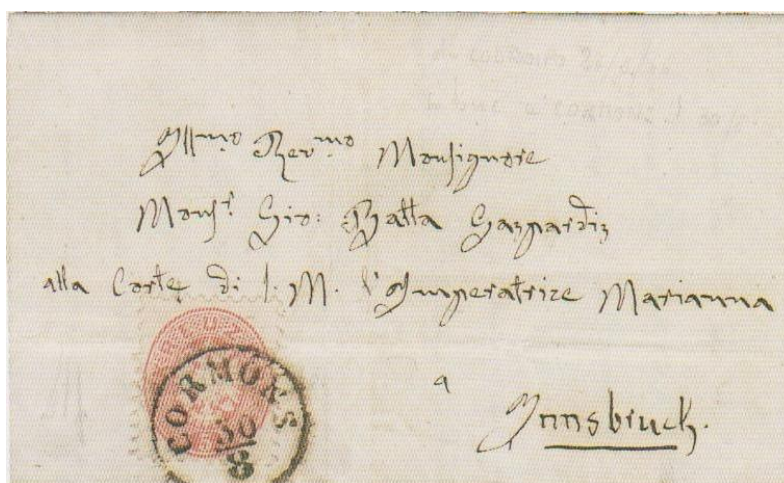 Illmo Revmo Monsignore
Monsr Gio: Batta Gaspardiz
alla Corte di S. M. l'Imperatrice Marianna
a
Innsbruch.
CORMONS
30
8